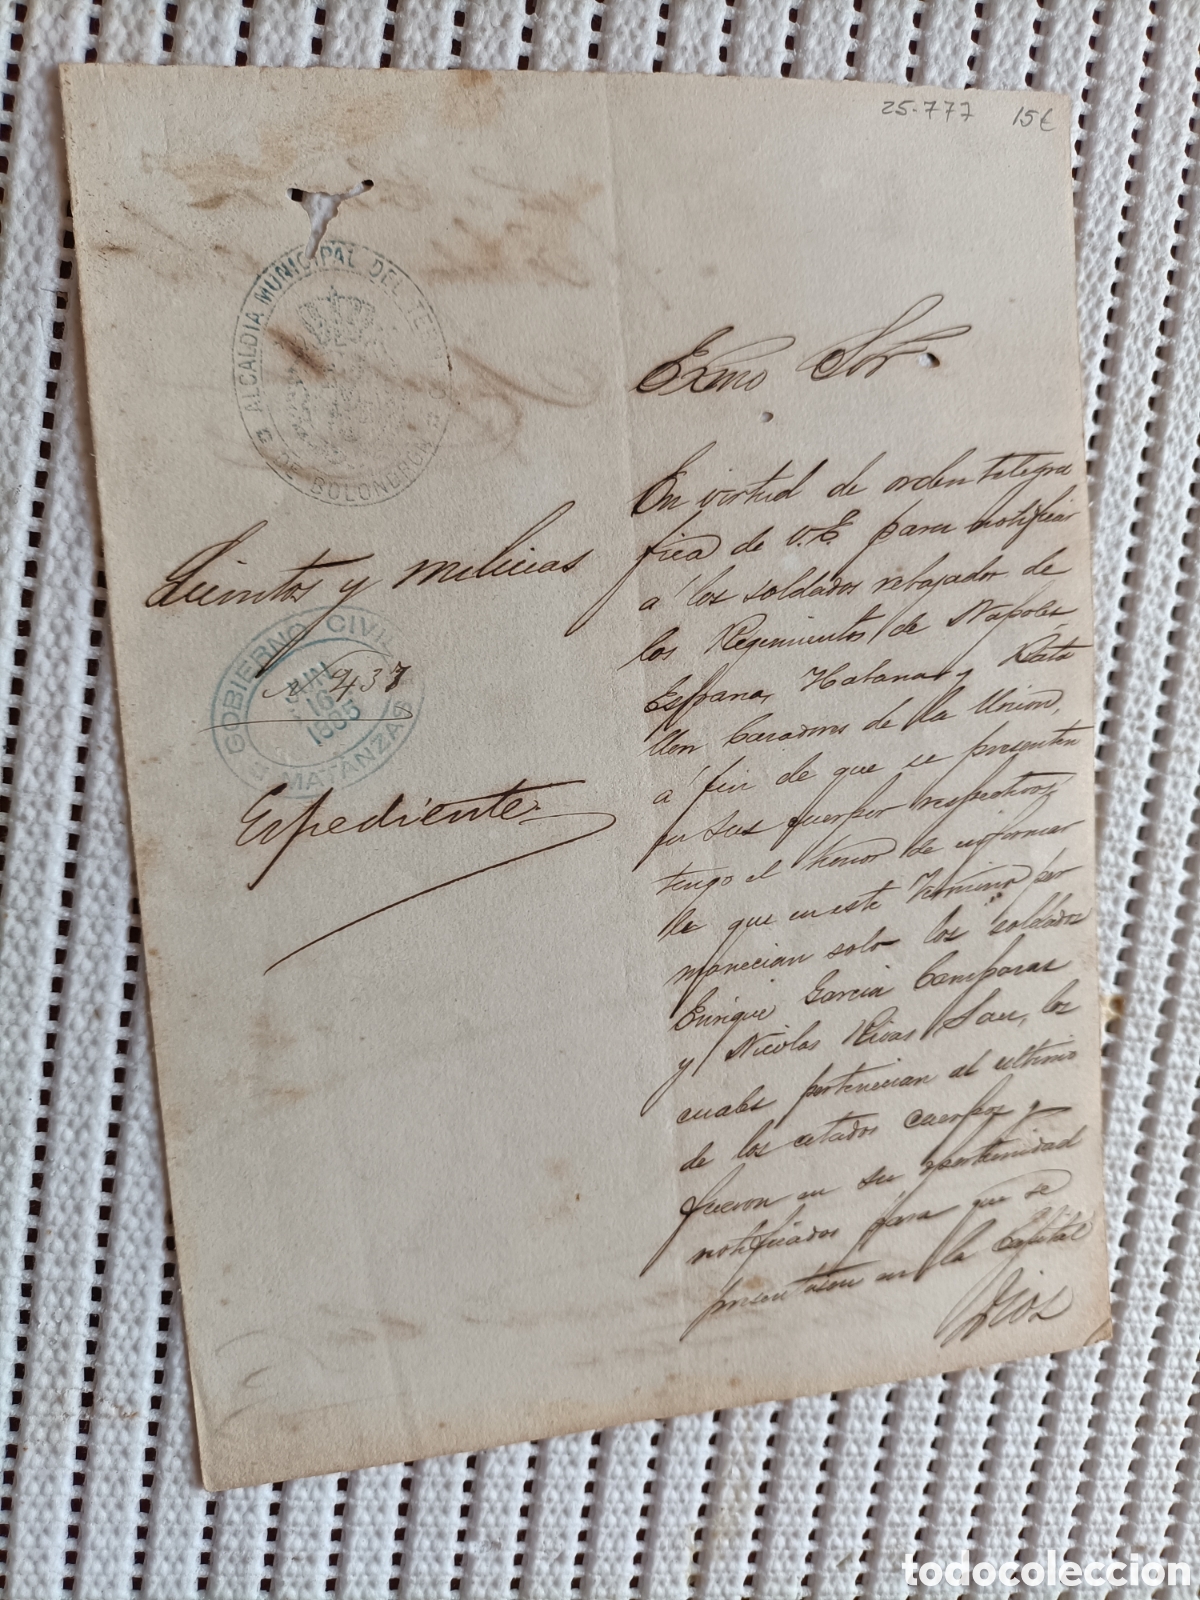 25-777 15€
ALCALDIA MUNICIPAL DEL TE
DE BOLONDRON
Exmo Sor
Quintos y milicias
GOBIERNO CIVIL
JUN
16
MATANZAS
Nº 437
Espediente
En virtud de orden telegra
fica de V.E. para notificar
á los soldados rebajados de
los Regimientos de Napoles,
España, Habana y Bata
llon Cazadores de la Union,
á fin de que se presenten
en sus cuerpos respectivos,
tengo el honor de informar
le que en este Termino per
manecian solo los soldados
Enrique Garcia Comparas
y Nicolas Rivas San, los
cuales pertenecian al ultimo
de los citados cuerpos y
fueron en su oportunidad
notificados para que se
presentasen en la Capital
Dios
todocoleccion